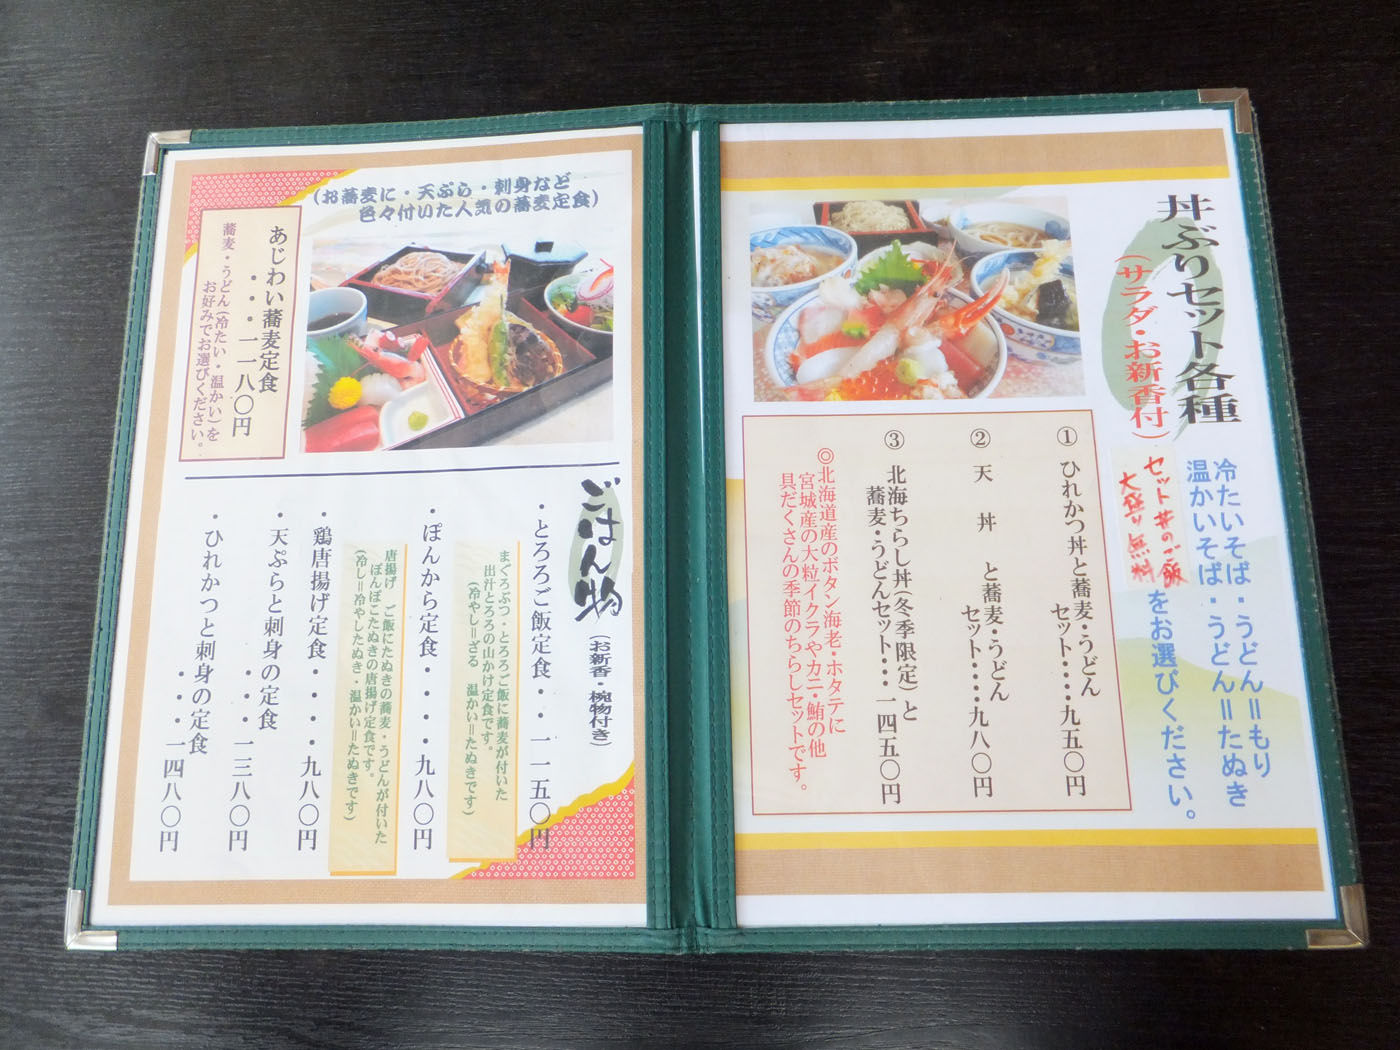 丼ぶりセット各種
（サラダ・お新香付）
セット丼のご飯
大盛り無料
冷たいそば・うどん＝もり
温かいそば・うどん＝たぬき
をお選びください。
① ひれかつ丼と蕎麦・うどん
セット・・・・九五〇円
② 天丼 と蕎麦・うどん
セット・・・・九八〇円
③ 北海ちらし丼（冬季限定）と
蕎麦・うどんセット・・・一四五〇円
◎北海道産のボタン海老・ホタテに
宮城産の大粒イクラやカニ・鮪の他
具だくさんの季節のちらしセットです。
（お蕎麦に・天ぷら・刺身など
色々付いた人気の蕎麦定食）
あじわい蕎麦定食
・・・一一八〇円
蕎麦・うどん（冷たい・温かい）を
お好みでお選びください。
ごはん物
（お新香・椀物付き）
・とろろご飯定食・・一一五〇円
まぐろぶつ・とろろご飯に蕎麦が付いた
出汁とろろの山かけ定食です。
（冷やし＝ざる 温かい＝たぬきです）
・ぽんから定食・・・・九八〇円
唐揚げ ご飯にたぬきの蕎麦・うどんが付いた
ぽんぽこたぬきの唐揚げ定食です。
（冷し＝冷やしたぬき・温かい＝たぬきです）
・鶏唐揚げ定食・・・・九八〇円
・天ぷらと刺身の定食
・・・一三八〇円
・ひれかつと刺身の定食
・・・一四八〇円